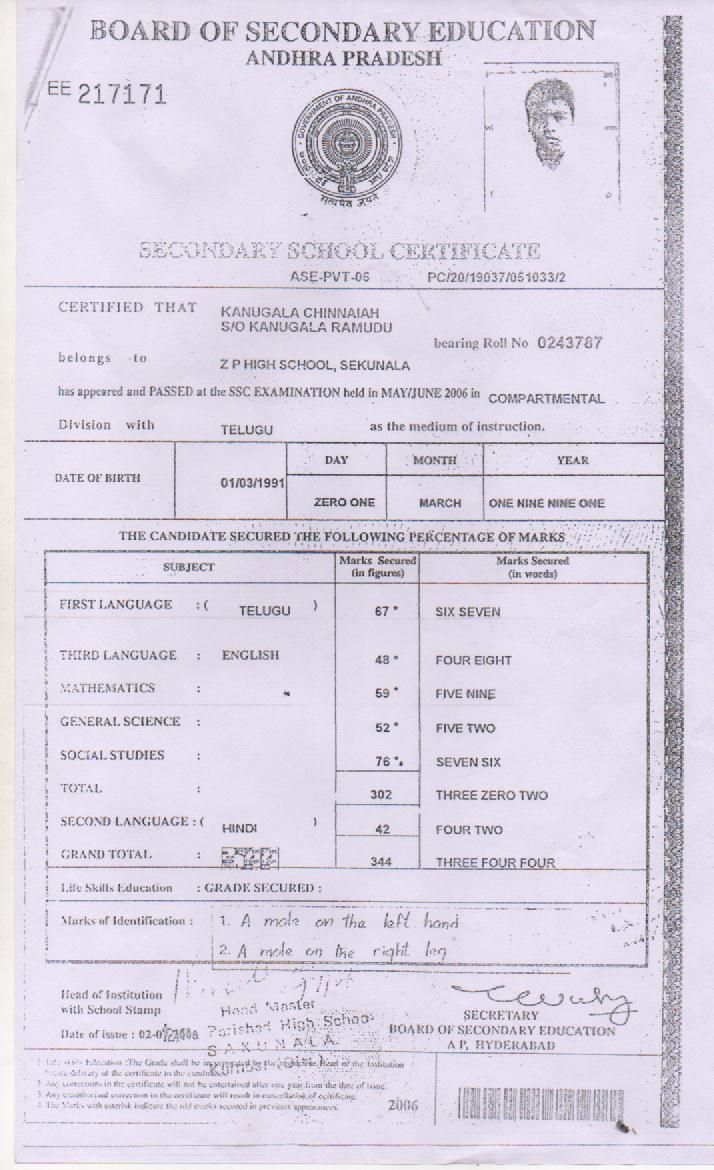 BOARD OF SECONDARY EDUCATION
ANDHRA PRADESH
EE 217171
GOVERNMENT OF ANDHRA PRADESH
सत्यमेव जयते
SECONDARY SCHOOL CERTIFICATE
ASE-PVT-06 PC/20/19037/051033/2
CERTIFIED THAT KANUGALA CHINNAIAH
S/O KANUGALA RAMUDU
bearing Roll No 0243787
belongs to Z P HIGH SCHOOL, SEKUNALA
has appeared and PASSED at the SSC EXAMINATION held in MAY/JUNE 2006 in COMPARTMENTAL
Division with TELUGU as the medium of instruction.
DAY MONTH YEAR
DATE OF BIRTH 01/03/1991
ZERO ONE MARCH ONE NINE NINE ONE
THE CANDIDATE SECURED THE FOLLOWING PERCENTAGE OF MARKS
SUBJECT Marks Secured (in figures) Marks Secured (in words)
FIRST LANGUAGE : ( TELUGU ) 67 * SIX SEVEN
THIRD LANGUAGE : ENGLISH 48 * FOUR EIGHT
MATHEMATICS : 59 * FIVE NINE
GENERAL SCIENCE : 52 * FIVE TWO
SOCIAL STUDIES : 76 * SEVEN SIX
TOTAL : 302 THREE ZERO TWO
SECOND LANGUAGE : ( HINDI ) 42 FOUR TWO
GRAND TOTAL : 344 THREE FOUR FOUR
Life Skills Education : GRADE SECURED :
Marks of Identification : 1. A mole on the left hand
2. A mole on the right leg
Head of Institution
with School Stamp
Head Master
Parishad High School
SAKUNALA
SECRETARY
BOARD OF SECONDARY EDUCATION
A P, HYDERABAD
Date of issue : 02-
1 Life skills Education :The Grade shall be incorporated by the respective Head of the Institution
before delivery of the certificate to the candidate.
2 Any corrections in the certificate will not be entertained after one year from the date of issue.
3 Any unauthorised correction in the certificate will result in cancellation of certificate.
4 The Marks with asterisk indicate the old marks secured in previous appearances.
2006